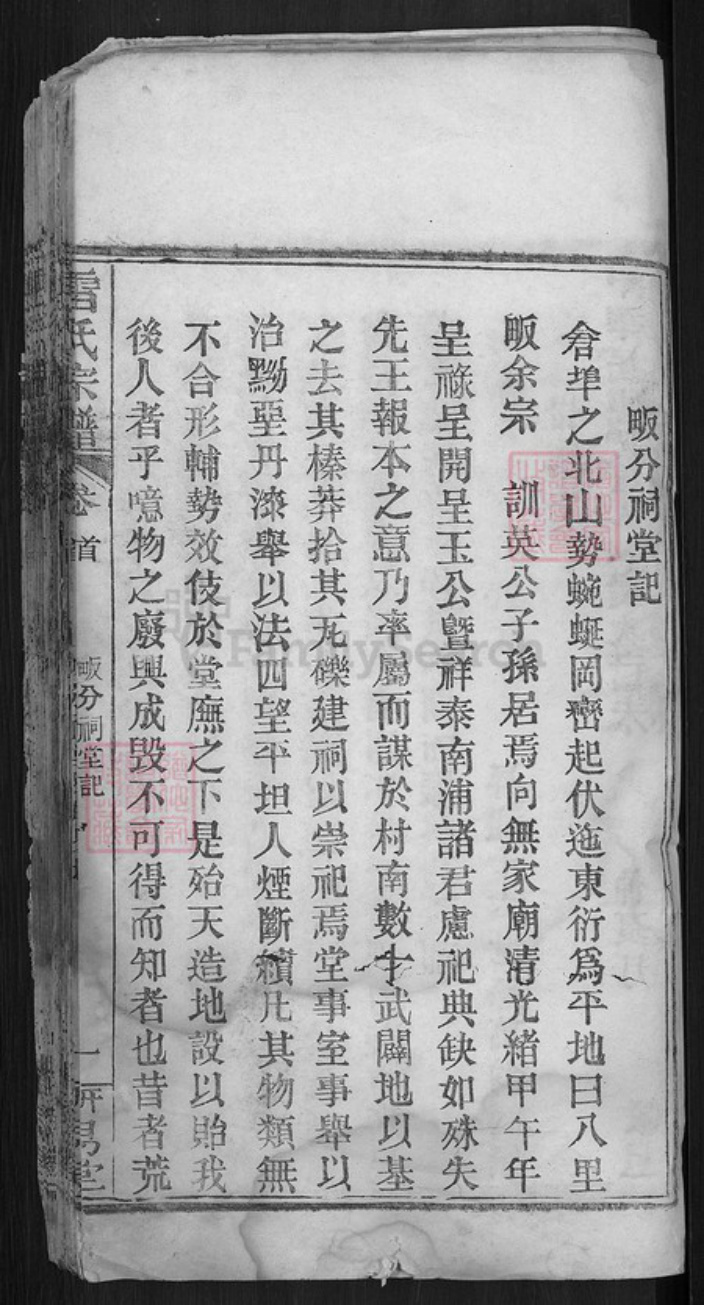 畈分祠堂記
倉埠之北山勢蜿蜒岡巒起伏迤東衍爲平地曰八里
畈余宗 訓英公子孫居焉向無家廟清光緒甲午年
呈祿呈開呈玉公曁祥泰南浦諸君慮祀典缺如殊失
先王報本之意乃率屬而謀於村南數十武闢地以基
之去其榛莽拾其瓦礫建祠以崇祀焉堂事室事舉以
治黝堊丹漆舉以法四望平坦人煙斷續凡其物類無
不合形輔勢效伎於堂廡之下是殆天造地設以貽我
後人者乎噫物之廢興成毀不可得而知者也昔者荒
氏宗譜
卷首
畈分祠堂記
一
堂
FamilySearch